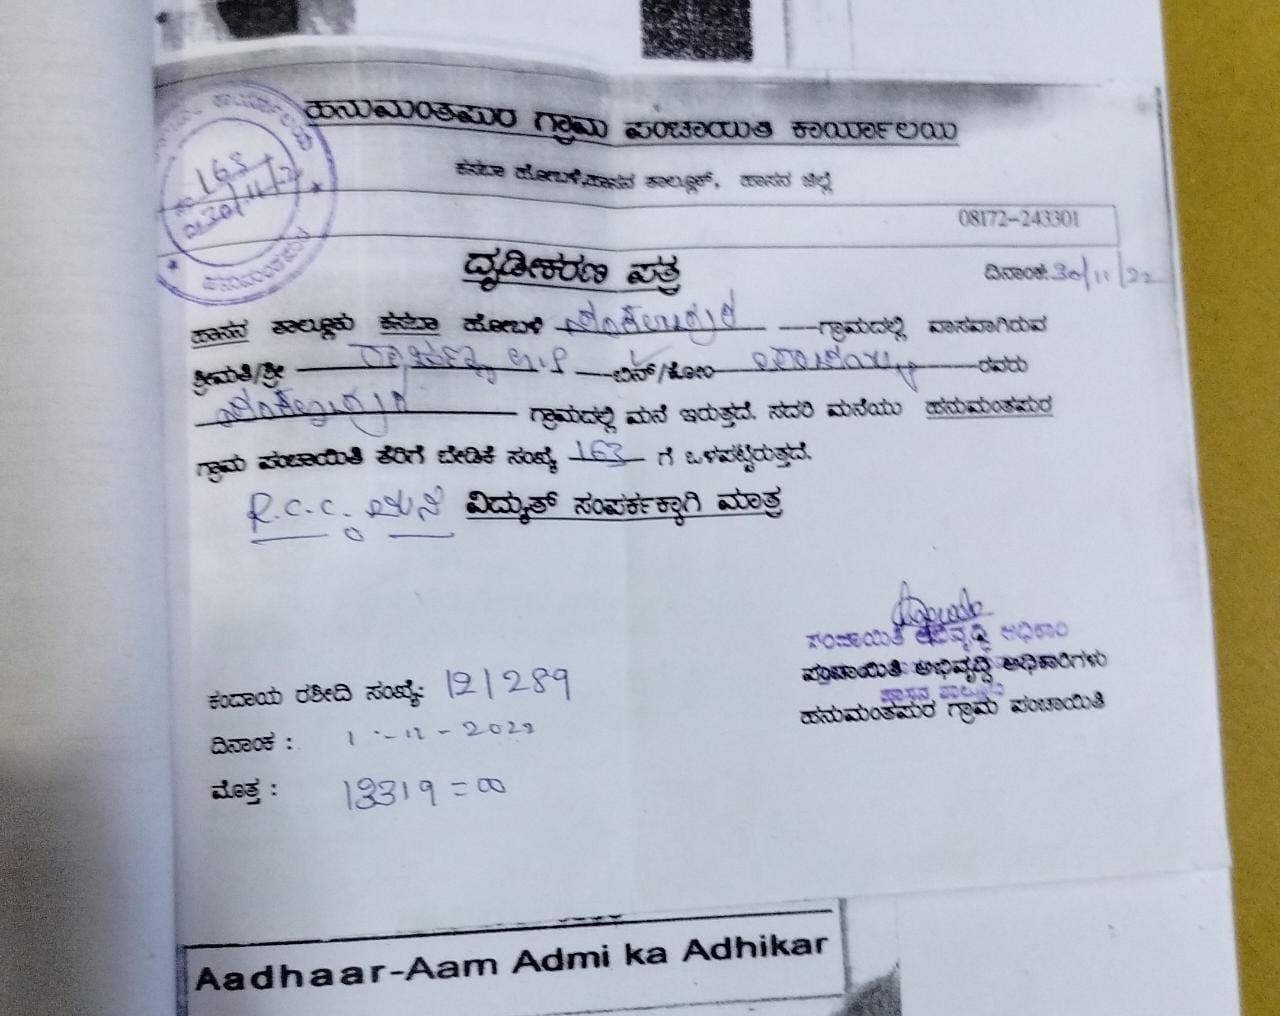 ಹನುಮಂತಪುರ ಗ್ರಾಮ ಪಂಚಾಯಿತಿ ಕಾರ್ಯಾಲಯ
ಕಸಬಾ ಹೋಬಳಿ,ಹಾಸನ ತಾಲ್ಲೂಕ್, ಹಾಸನ ಜಿಲ್ಲೆ
163
30/11/2
ಹನುಮಂತಪುರ
08172-243301
ದೃಢೀಕರಣ ಪತ್ರ
ದಿನಾಂಕ: 30/11/22
ಹಾಸನ ತಾಲ್ಲೂಕು ಕಸಬಾ ಹೋಬಳಿ ಗ್ರಾಮದಲ್ಲಿ ವಾಸವಾಗಿರುವ
ಶ್ರೀಮತಿ/ಶ್ರೀ ಬಿನ್/ಕೋಂ ರವರು
ಗ್ರಾಮದಲ್ಲಿ ಮನೆ ಇರುತ್ತದೆ. ಸದರಿ ಮನೆಯು ಹನುಮಂತಪುರ
ಗ್ರಾಮ ಪಂಚಾಯಿತಿ ತೆರಿಗೆ ಬೇಡಿಕೆ ಸಂಖ್ಯೆ 163 ಗೆ ಒಳಪಟ್ಟಿರುತ್ತದೆ.
R.C.C. ಮನೆ ವಿದ್ಯುತ್ ಸಂಪರ್ಕಕ್ಕಾಗಿ ಮಾತ್ರ
ಪಂಚಾಯಿತಿ ಅಭಿವೃದ್ಧಿ ಅಧಿಕಾರಿ
ಪಂಚಾಯಿತಿ ಅಭಿವೃದ್ಧಿ ಅಧಿಕಾರಿಗಳು
ಹಾಸನ ತಾಲ್ಲೂಕು
ಹನುಮಂತಪುರ ಗ್ರಾಮ ಪಂಚಾಯಿತಿ
ಕಂದಾಯ ರಶೀದಿ ಸಂಖ್ಯೆ: 121289
ದಿನಾಂಕ :
ಮೊತ್ತ : 13319=00
Aadhaar-Aam Admi ka Adhikar